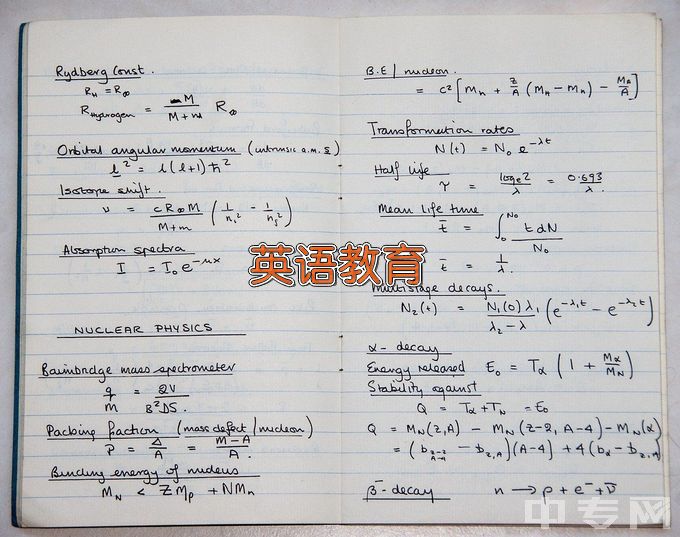 Rydberg Const.
R_H = R_∞
R_Hydrogen = M / M+m R_∞
Orbital angular momentum (intrinsic a.m. s)
l² = l(l+1)ħ²
Isotope shift.
ν = cR_∞M / M+m (1/n_i² - 1/n_f²)
Absorption spectra
I = I₀e^-μx
NUCLEAR PHYSICS
Bainbridge mass spectrometer
q/m = 2V / B²DS.
Packing fraction (mass defect/nucleon)
P = Δ/A = M-A / A.
Binding energy of nucleus
M_N < ZM_p + NM_n
B.E/nucleon.
= c² [M_n + Z/A (M_H - M_n) - M_A/A]
Transformation rates
N(t) = N₀ e^-λt
Half life
τ = log_e 2 / λ = 0.693 / λ.
Mean life time
t̄ = ∫₀^N₀ t dN / N₀
t̄ = 1/λ.
Multistage decays.
N₂(t) = N₁(0)λ₁ / λ₂-λ (e^-λ₁t - e^-λ₂t)
α-decay
Energy released E₀ = T_α (1 + M_α/M_N)
Stability against
Q = T_α + T_N = E₀
Q = M_N(Z,A) - M_N(Z-2, A-4) - M_N(α)
= (b_Z-2,A-4 - b_Z,A)(A-4) + 4(b_α - b_Z,A)
β⁻-decay n → p + e⁻ + ν̄
英语教育
中专网